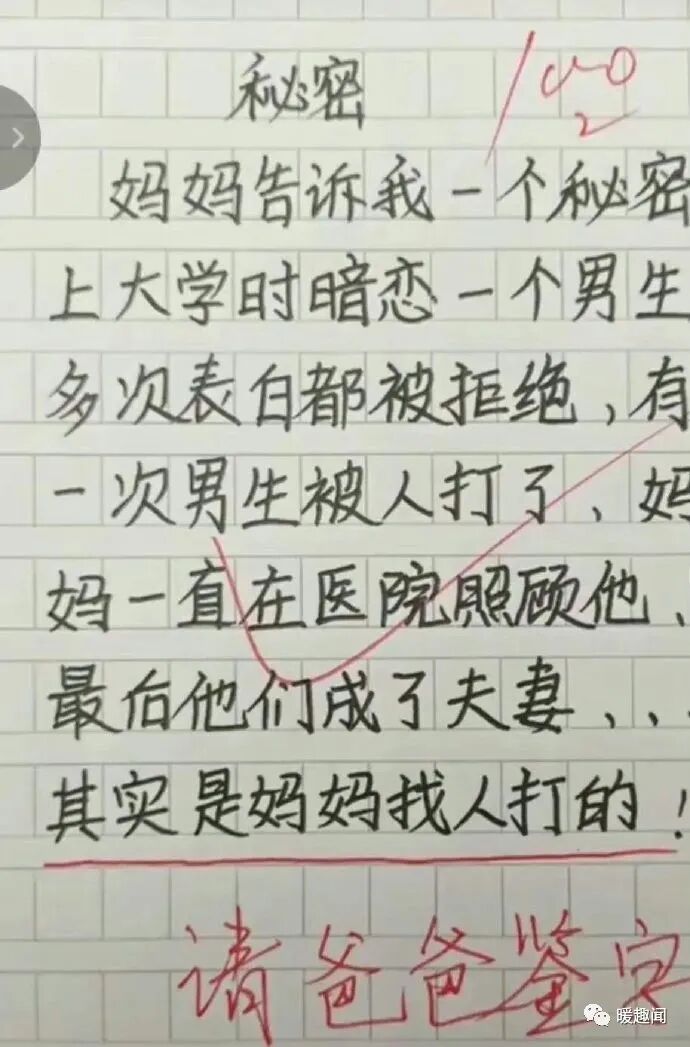 秘密
妈妈告诉我一个秘密
上大学时暗恋一个男生
多次表白都被拒绝、有
一次男生被人打了、妈
妈一直在医院照顾他、
最后他们成了夫妻、、、
其实是妈妈找人打的！
请爸爸鉴定
暖趣闻